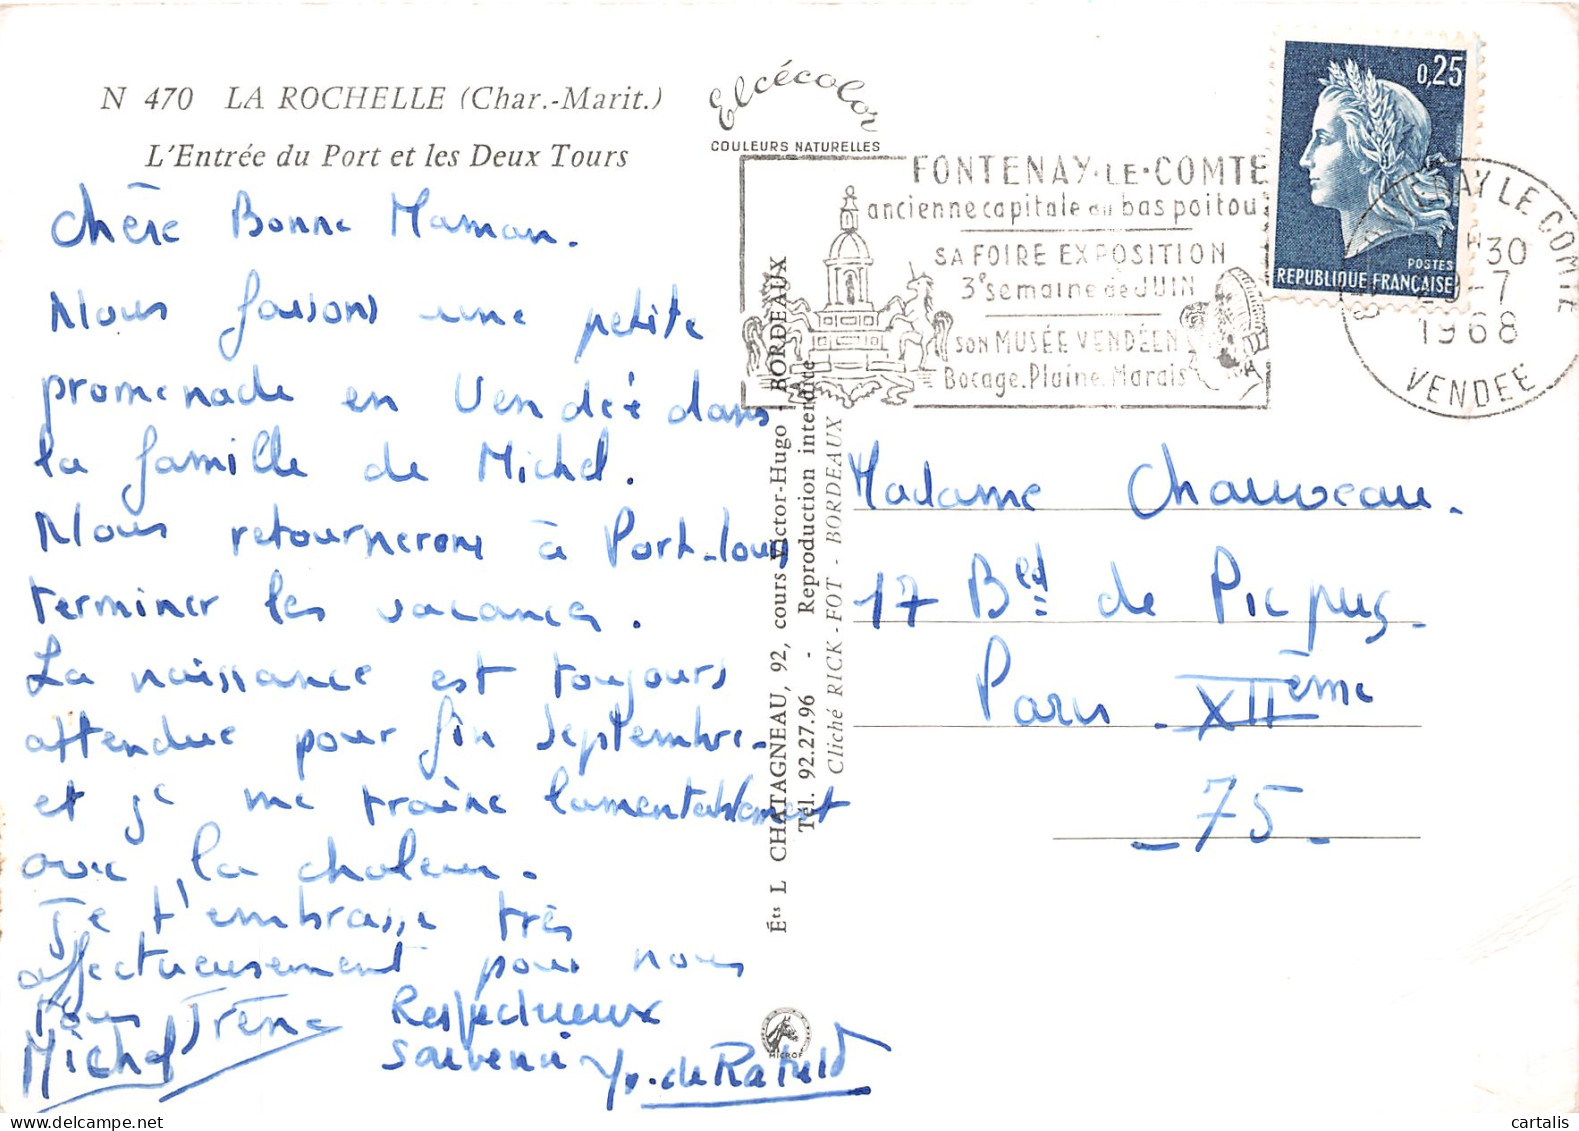 N 470 LA ROCHELLE (Char.-Marit.)
L'Entrée du Port et les Deux Tours
Elcécolor
COULEURS NATURELLES
FONTENAY·LE·COMTE
ancienne capitale du bas poitou
SA FOIRE EXPOSITION
3e semaine de JUIN
SON MUSÉE VENDÉEN
Bocage. Plaine. Marais
0,25
POSTES
REPUBLIQUE FRANÇAISE
FONTENAY LE COMTE
30
-7
1968
VENDEE
Chère Bonne Maman.
Nous faisons une petite
promenade en Vendée dans
la famille de Michel.
Nous retournerons à Port-Louis
terminer les vacances.
La naissance est toujours
attendue pour fin Septembre-
et je me traîne lamentablement
avec la chaleur.
Je t'embrasse très
affectueusement pour nous
tous Irène
Michel
Respectueux
Souvenir
Éts L CHATAGNEAU, 92, cours Victor-Hugo - BORDEAUX
Tél. 92.27.96 - Reproduction interdite
Cliché RICK-FOT - BORDEAUX
MICROF
Madame Chauveau.
17 Bld de Picpus.
Paris - XIIème
- 75 -